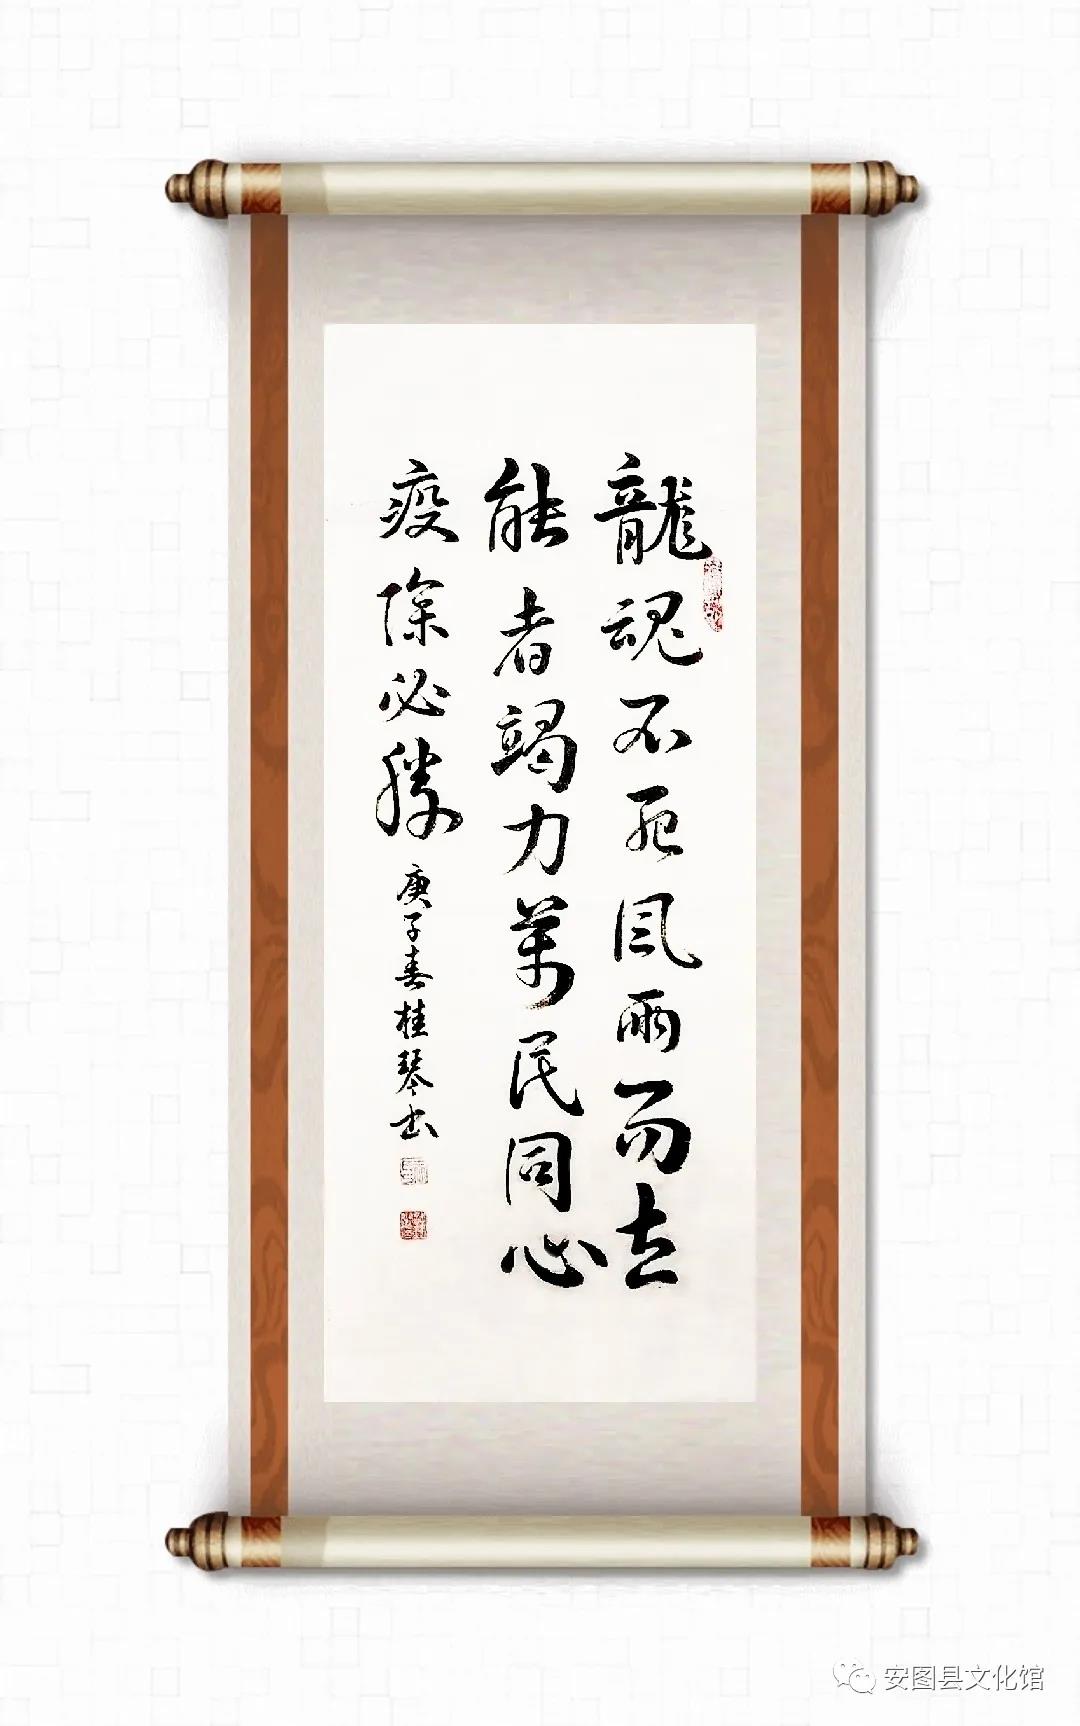 龍魂不死风雨而立
能者竭力萬民同心
疫除必勝
庚子春桂琴书
安图县文化馆